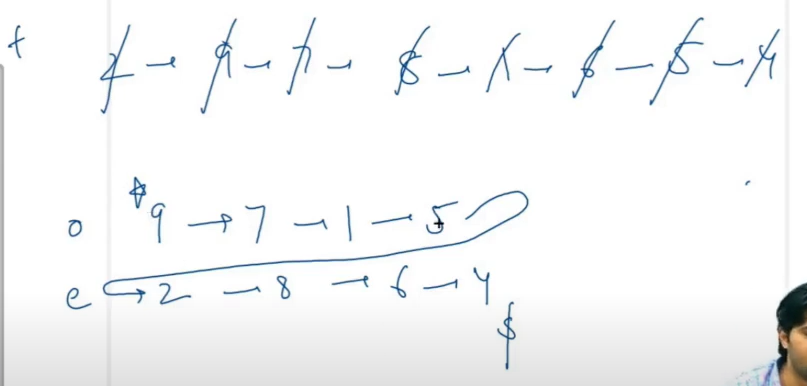 2 → 9 → 7 → 8 → 1 → 6 → 5 → 4
o 9 → 7 → 1 → 5
e → 2 → 8 → 6 → 4